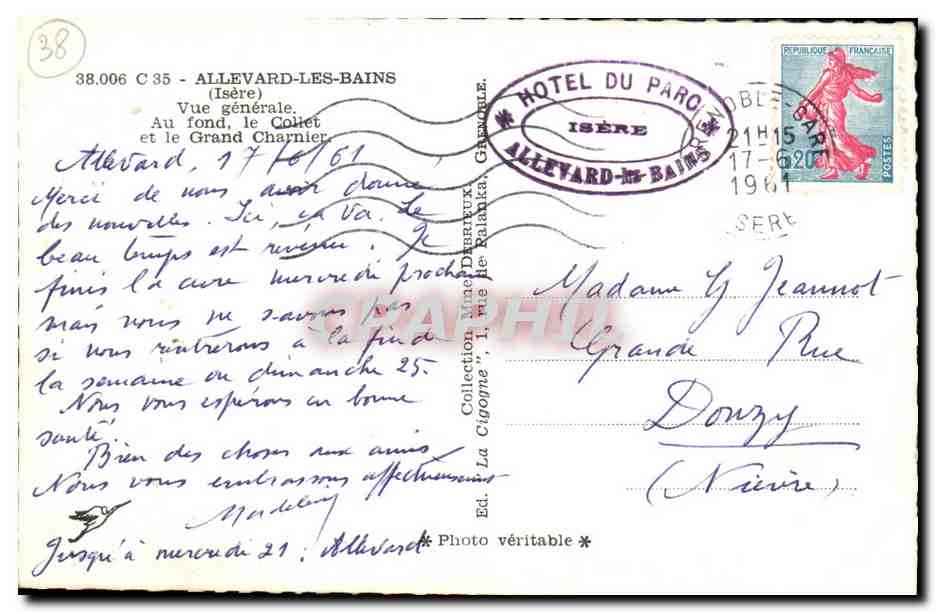 38
38.006 C 35 - ALLEVARD-LES-BAINS
(Isère)
Vue générale.
Au fond, le Collet
et le Grand Charnier.
Allevard, 17/6/61
Merci de nous avoir donné
des nouvelles. Ici, ça va. Le
beau temps est revenu. Je
finis la cure mercredi prochain
mais nous ne savons pas
si nous rentrerons à la fin de
la semaine ou dimanche 25.
Nous vous espérons en bonne
santé.
Bien des choses aux amis
Nous vous embrassons affectueusement
Madeleine
Jusqu'à mercredi 21 : Allevard
Collection Mme DEBRIEUX.
Ed. "La Cigogne", 1, rue de Palanka, GRENOBLE.
* Photo véritable *
* HOTEL DU PARC *
ISÈRE
ALLEVARD-les-BAINS
GARE
21H15
17-6
1961
ISERE
REPUBLIQUE FRANÇAISE
0,20
POSTES
Madame G Jeannot
Grande Rue
Donzy
(Nièvre)
CPAPHIL